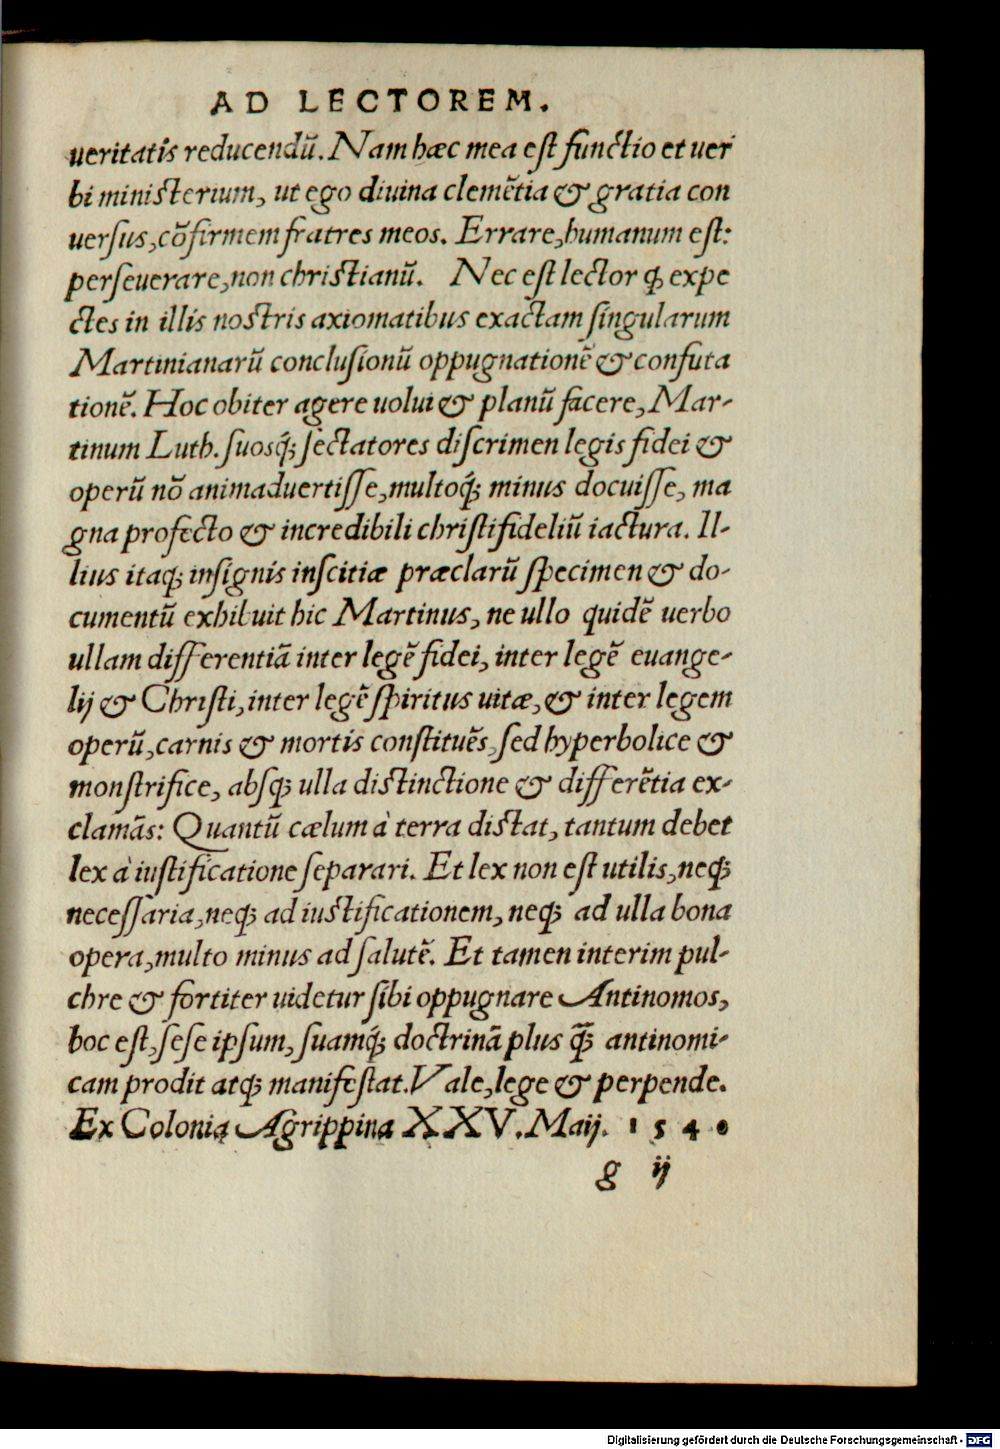 AD LECTOREM.
ueritatis reducendũ. Nam hæc mea est functio et uer
bi ministerium, ut ego diuina clemẽtia & gratia con
uersus, cõfirmem fratres meos. Errare, humanum est:
perseuerare, non christianũ. Nec est lector ꝙ expe
ctes in illis nostris axiomatibus exactam singularum
Martinianarũ conclusionũ oppugnationẽ & confuta
tionẽ. Hoc obiter agere uolui & planũ facere, Mar-
tinum Luth. suosq́; sectatores discrimen legis fidei &
operũ nõ animaduertisse, multoq́; minus docuisse, ma
gna profecto & incredibili christifideliũ iactura. Il-
lius itaq; insignis inscitiæ præclarũ specimen & do-
cumentũ exhibuit hic Martinus, ne ullo quidẽ uerbo
ullam differentiã inter legẽ fidei, inter legẽ euange-
lij & Christi, inter legẽ spiritus uitæ, & inter legem
operũ, carnis & mortis constituẽs, sed hyperbolice &
monstrifice, absq; ulla distinctione & differẽtia ex-
clamãs: Quantũ cælum à terra distat, tantum debet
lex à iustificatione separari. Et lex non est utilis, neq;
necessaria, neq; ad iustificationem, neq; ad ulla bona
opera, multo minus ad salutẽ. Et tamen interim pul-
chre & fortiter uidetur sibi oppugnare Antinomos,
hoc est, sese ipsum, suamq́; doctrinã plus q̃; antinomi-
cam prodit atq; manifestat. Vale, lege & perpende.
Ex Colonia Agrippina XXV. Maij. 1540
g ij
Digitalisierung gefördert durch die Deutsche Forschungsgemeinschaft - DFG